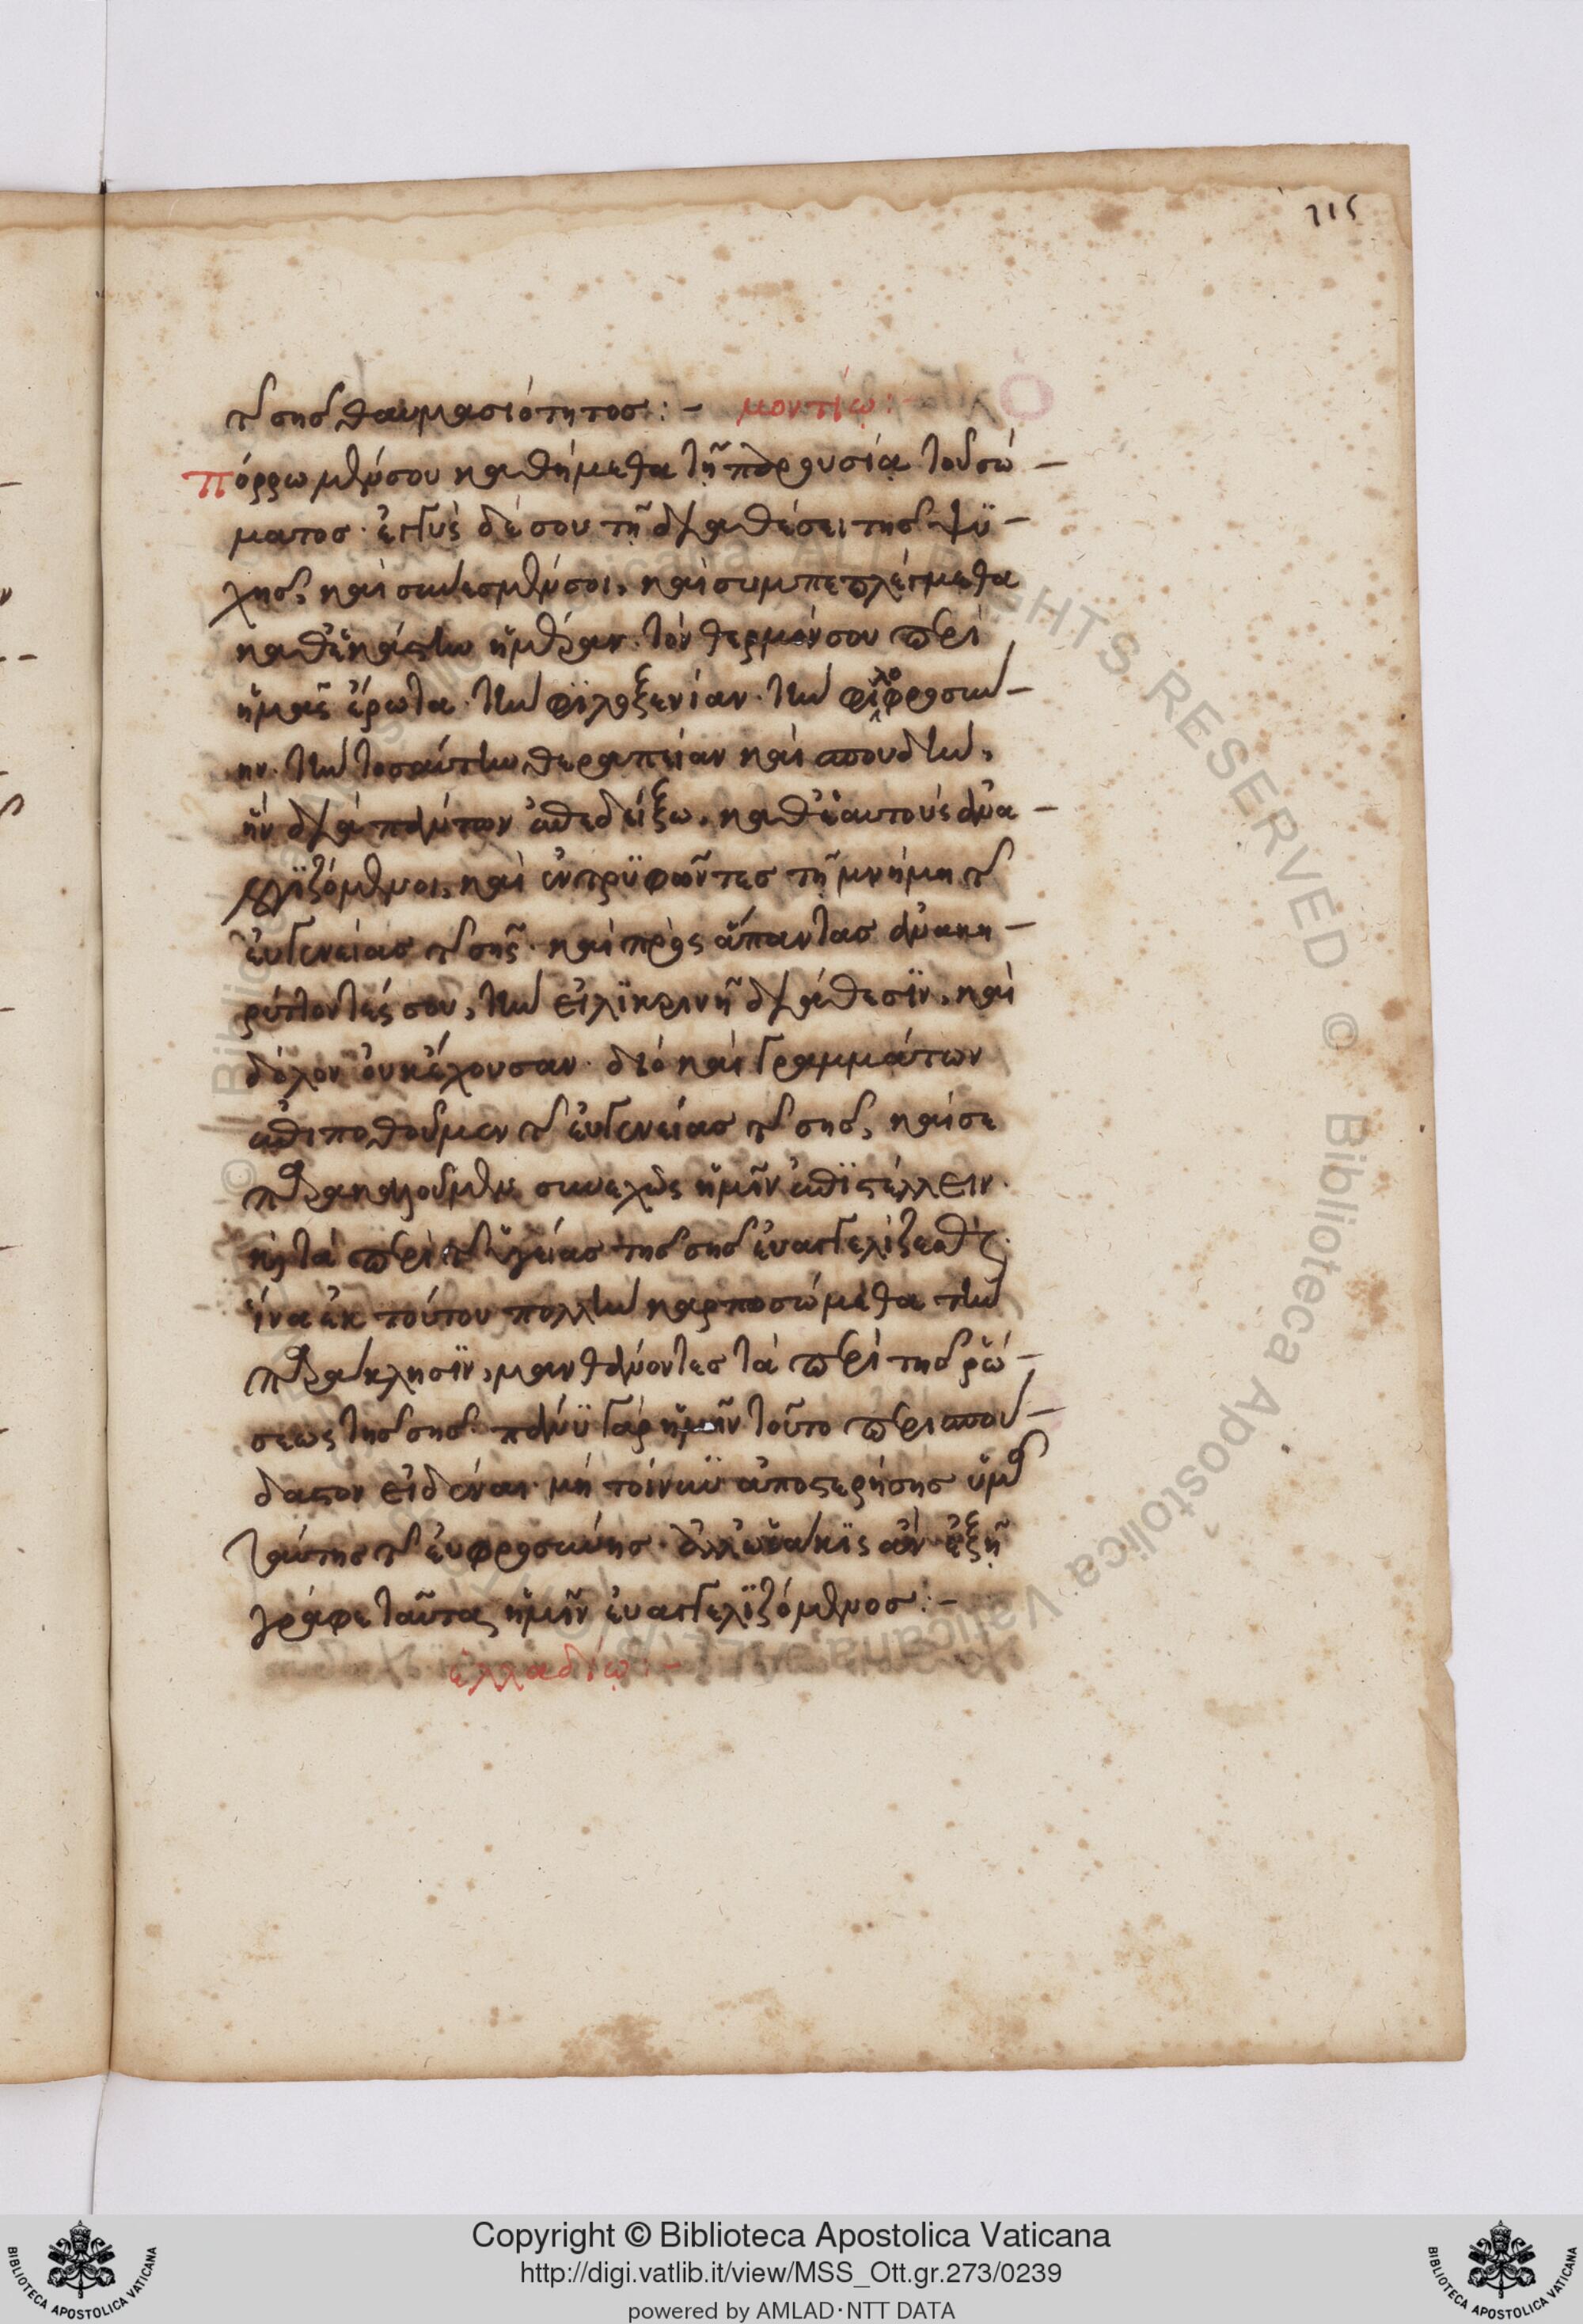 215
τῆς σῆς θαυμασιότητος:- μοντίῳ:-
πόρρω μέν σου καθήμεθα τῇ παρουσίᾳ τοῦ σώ-
ματος· ἐγγὺς δέ σου τῇ διαθέσει τῆς ψϋ-
χῆς, καὶ συνεσμέν σοι, καὶ συμπεπλέγμεθα
καθ' ἑκάστην ἡμέραν· τὸν θερμόν σου περὶ
ἡμᾶς ἔρωτα· τὴν φϊλοξενίαν· τὴν φιλοφροσύ-
νην· τὴν τοσαύτην θεραπείαν καὶ σπουδὴν,
ἣν διὰ πάντων ἐπεδείξω, καθ' ἑαυτοὺς ἀνα-
λογϊζόμενοι, καὶ ἐντρϋφῶντες τῇ μνήμῃ τῆς
εὐγενείας τῆς σῆς· καὶ πρὸς ἅπαντας ἀνακη-
ρύττοντές σου, τὴν εἰλϊκρινῆ διάθεσϊν, καὶ
δόλον οὐκ ἔχουσαν· διὸ καὶ γραμμάτων
ἐπιποθοῦμεν τῆς εὐγενείας τῆς σῆς, καί σε
παρακαλοῦμεν συνεχῶς ἡμῖν ἐπϊστέλλειν·
καὶ τὰ περὶ τῆς ὑγείας τῆς σῆς εὐαγγελίζεσθαι·
ἵνα ἐκ τούτου πολλὴν καρπωσώμεθα τὴν
παράκλησϊν, μανθάνοντες τὰ περὶ τῆς ῥώ-
σεως τῆς σῆς· πάνϋ γὰρ ἡμῖν τοῦτο περισπού-
δαστον εἰδέναι· μὴ τοίνυν ἀποστερήσῃς ὑμᾶς
ταύτης τῆς εὐφροσύνης· ἀλλ' ὁσάκϊς ἂν ἐξῇ
γράφε ταῦτα ἡμῖν εὐαγγελϊζόμενος:-
ἑλλαδίῳ:-
Copyright © Biblioteca Apostolica Vaticana
http://digi.vatlib.it/view/MSS_Ott.gr.273/0239
powered by AMLAD·NTT DATA